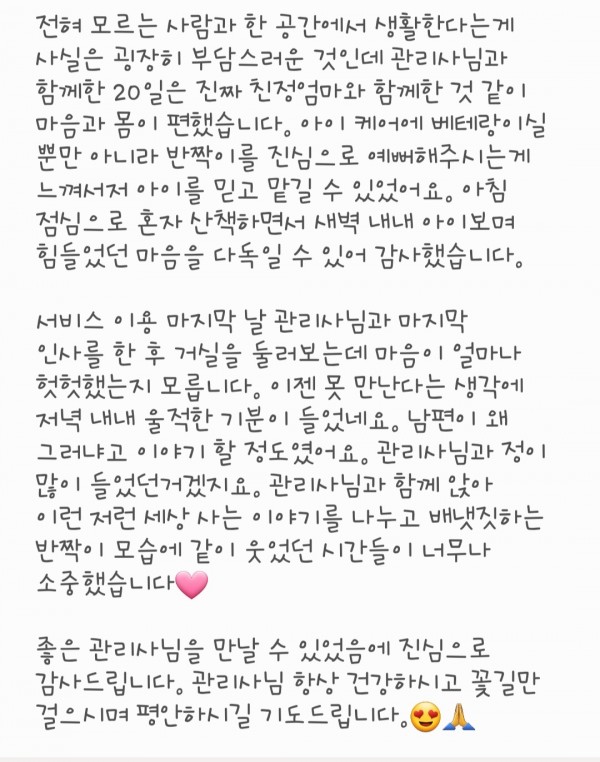 전혀 모르는 사람과 한 공간에서 생활한다는게
사실은 굉장히 부담스러운 것인데 관리사님과
함께한 20일은 진짜 친정엄마와 함께한 것 같이
마음과 몸이 편했습니다. 아이 케어에 베테랑이실
뿐만 아니라 반짝이를 진심으로 예뻐해주시는게
느껴서저 아이를 믿고 맡길 수 있었어요. 아침
점심으로 혼자 산책하면서 새벽 내내 아이보며
힘들었던 마음을 다독일 수 있어 감사했습니다.
서비스 이용 마지막 날 관리사님과 마지막
인사를 한 후 거실을 둘러보는데 마음이 얼마나
헛헛했는지 모릅니다. 이젠 못 만난다는 생각에
저녁 내내 울적한 기분이 들었네요. 남편이 왜
그러냐고 이야기 할 정도였어요. 관리사님과 정이
많이 들었던거겠지요. 관리사님과 함께 앉아
이런 저런 세상 사는 이야기를 나누고 배냇짓하는
반짝이 모습에 같이 웃었던 시간들이 너무나
소중했습니다🩷
좋은 관리사님을 만날 수 있었음에 진심으로
감사드립니다. 관리사님 항상 건강하시고 꽃길만
걸으시며 평안하시길 기도드립니다.😍🙏